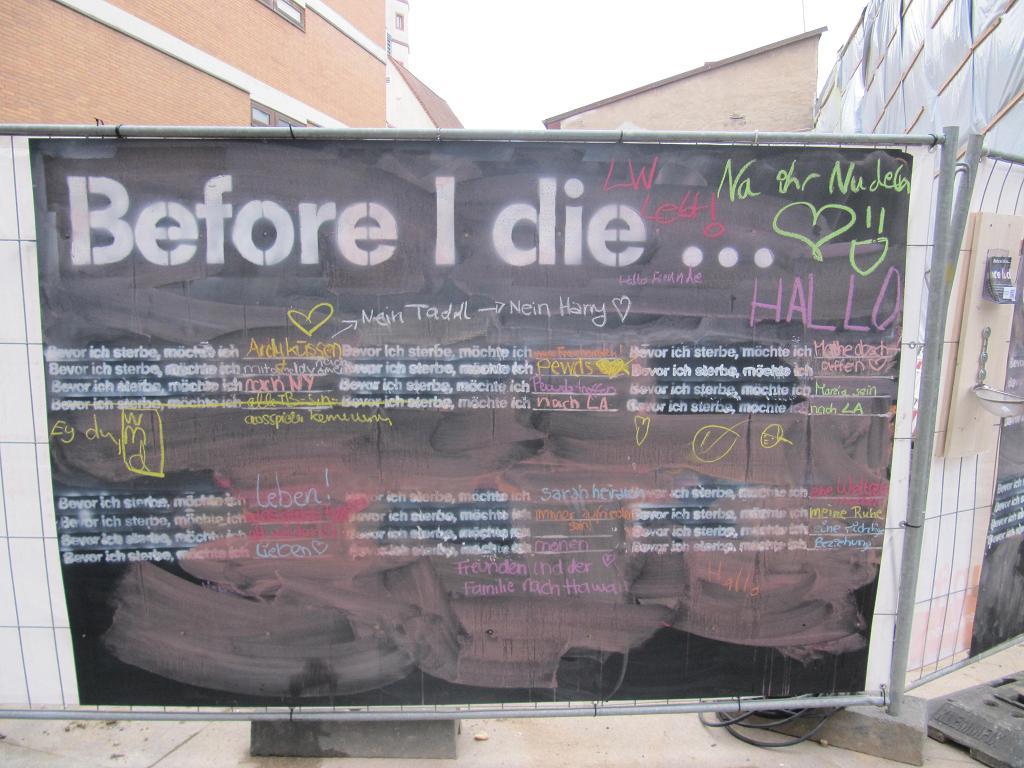 Before I die ...
LW
Lebt!
Na ihr Nudeln
Hallo Freunde
HALLO
Mein Taddl → Nein Harry
Bevor ich sterbe, möchte ich Ardy küssen
Bevor ich sterbe, möchte ich
Bevor ich sterbe, möchte ich nach NY
Bevor ich sterbe, möchte ich
kommen
Bevor ich sterbe, möchte ich
Bevor ich sterbe, möchte ich Pewds
Bevor ich sterbe, möchte ich
Bevor ich sterbe, möchte ich nach LA
Bevor ich sterbe, möchte ich Mathe
Bevor ich sterbe, möchte ich
Bevor ich sterbe, möchte ich sein
Bevor ich sterbe, möchte ich nach LA
Ey du
Bevor ich sterbe, möchte ich Leben!
Bevor ich sterbe, möchte ich
Bevor ich sterbe, möchte ich
Bevor ich sterbe, möchte ich Lieben
Bevor ich sterbe, möchte ich Sarah heiraten
Bevor ich sterbe, möchte ich immer zufrieden sein!
Bevor ich sterbe, möchte ich
Bevor ich sterbe, möchte ich meinen
Freunden und der
Familie nach Hawaii
Bevor ich sterbe, möchte ich
Bevor ich sterbe, möchte ich meine Ruhe
Bevor ich sterbe, möchte ich eine richtige
Bevor ich sterbe, möchte ich Beziehung
Hallo